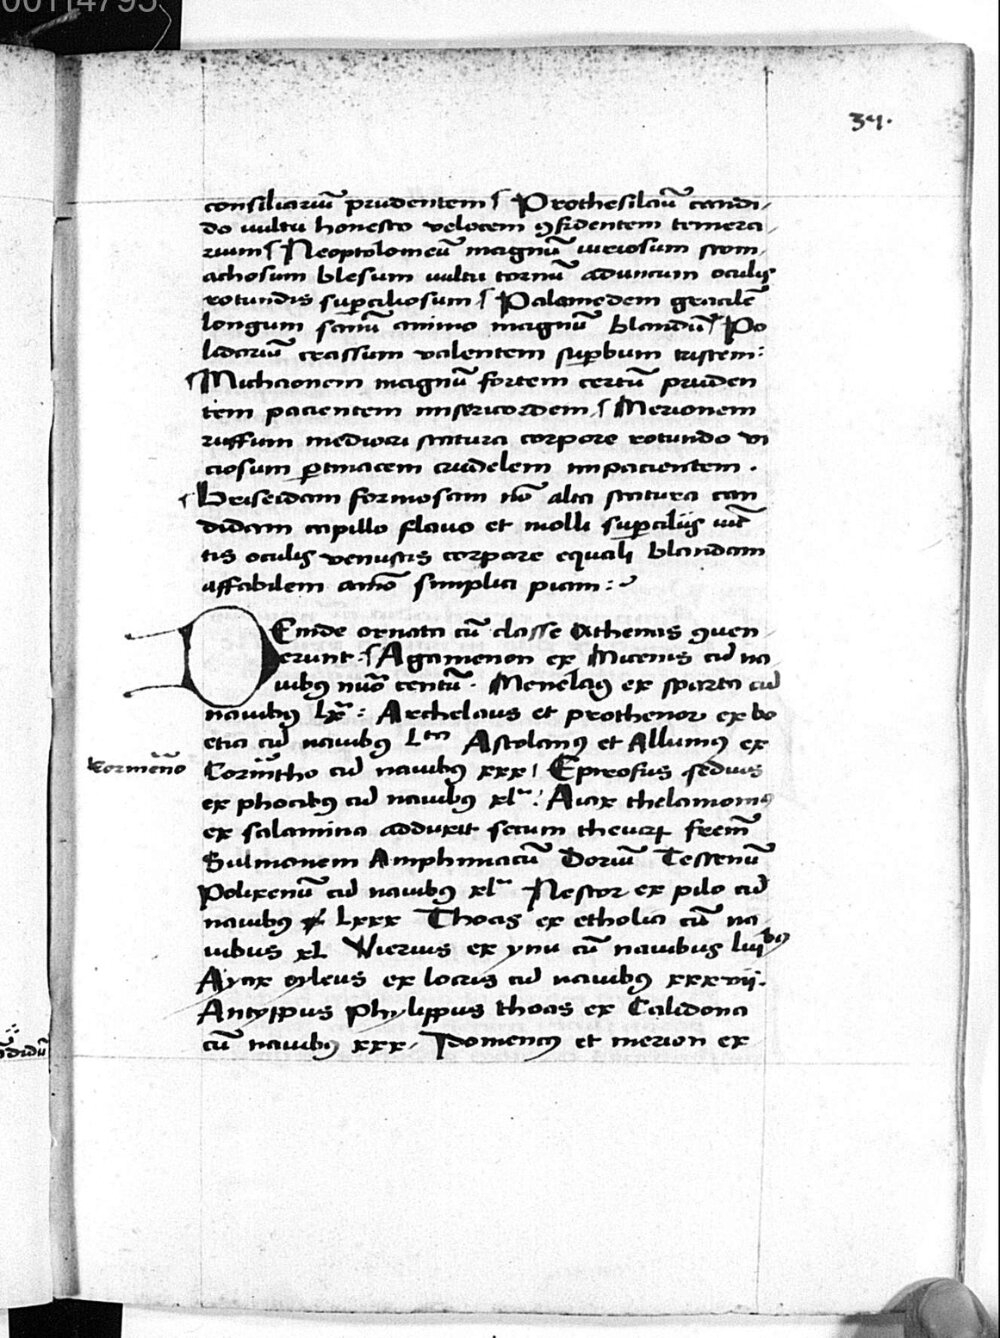 00114795
34.
consiliariū prudentem Prothesilaū candi
do uultu honesto velocem ꝯfidentem temera
rium Neoptolomeū magnū uiriosum stom
achosum blesum uultu tornū aduncum oculis
rotundis suꝑciliosum Palamedem gracilē
longum sanū animo magnū blandū Po
lidariū crassum valentem suꝑbum tristem:
Machaonem magnū fortem certū pruden
tem pacientem misericordem Merionem
ruffum mediocri statura corpore rotundo vi
ciosum ꝑtinacem crudelem impacientem.
Briseidam formosam nō alta statura can
didam capillo flauo et molli suꝑciliis iūc
tis oculis venustis corpore equali blandam
affabilem aīo simplici piam:
DEinde ornata cū classe Athenis ꝯuen
erunt Agamenon ex Micenis cū na
uibꝰ nūo centū. Menelaꝰ ex sparta cū
nauibꝰ lx: Archelaus et prothenor ex bo
etia cū nauibꝰ Lta Astolanꝰ et Allumꝰ ex
Cormēno
Corintho cū nauibꝰ xxx Epreofus sedius
ex phocibꝰ cū nauibꝰ xl: Aiax thelamoniꝰ
ex salamina adduxit secum theucꝝ frēm
Bulmanem Amphimacū Doriū Testenū
Polixenū cū nauibꝰ xl Nestor ex pilo cū
nauibꝰ Lxxx Thoas ex etholia cū na
uibus xL Vierius ex ynu cū nauibus
Ayax oyleus ex locris cū nauibꝰ xxxvij.
Antyppus Phylippus thoas ex Calidona
cū nauibꝰ xxx. Idomeneꝰ et merion ex